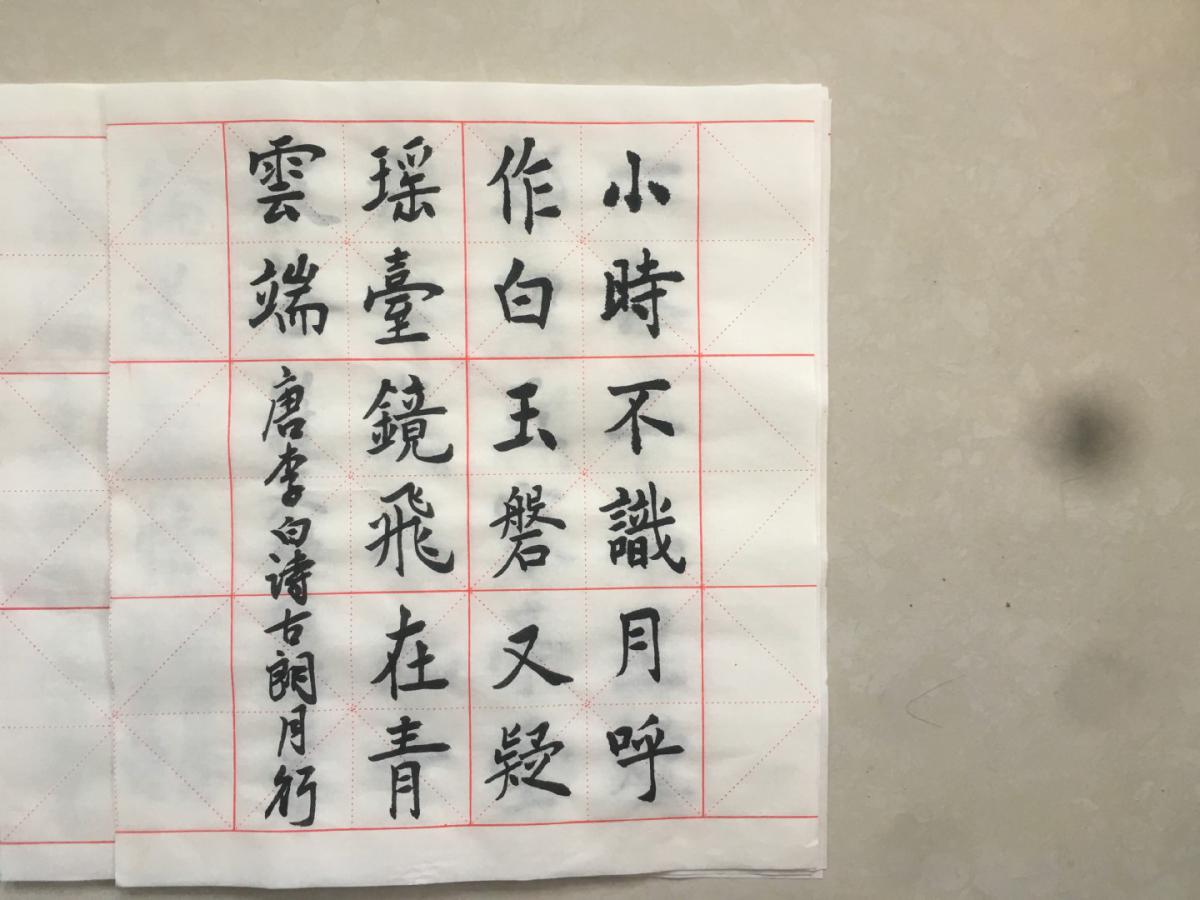 小時不識月呼
作白玉磐又疑
瑶臺鏡飛在青
雲端 唐李白詩古朗月行